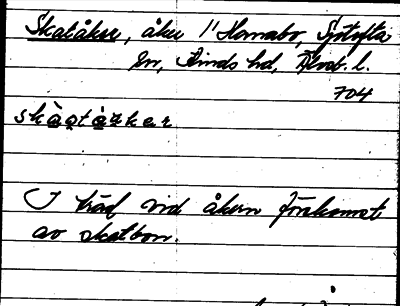 Skatåker, åker 1" Hornabo, Sjötofta
sn, Kinds hd, Älvsb. l.
704
skàtàkər
I träd vid åkern förekomst
av skatbon.